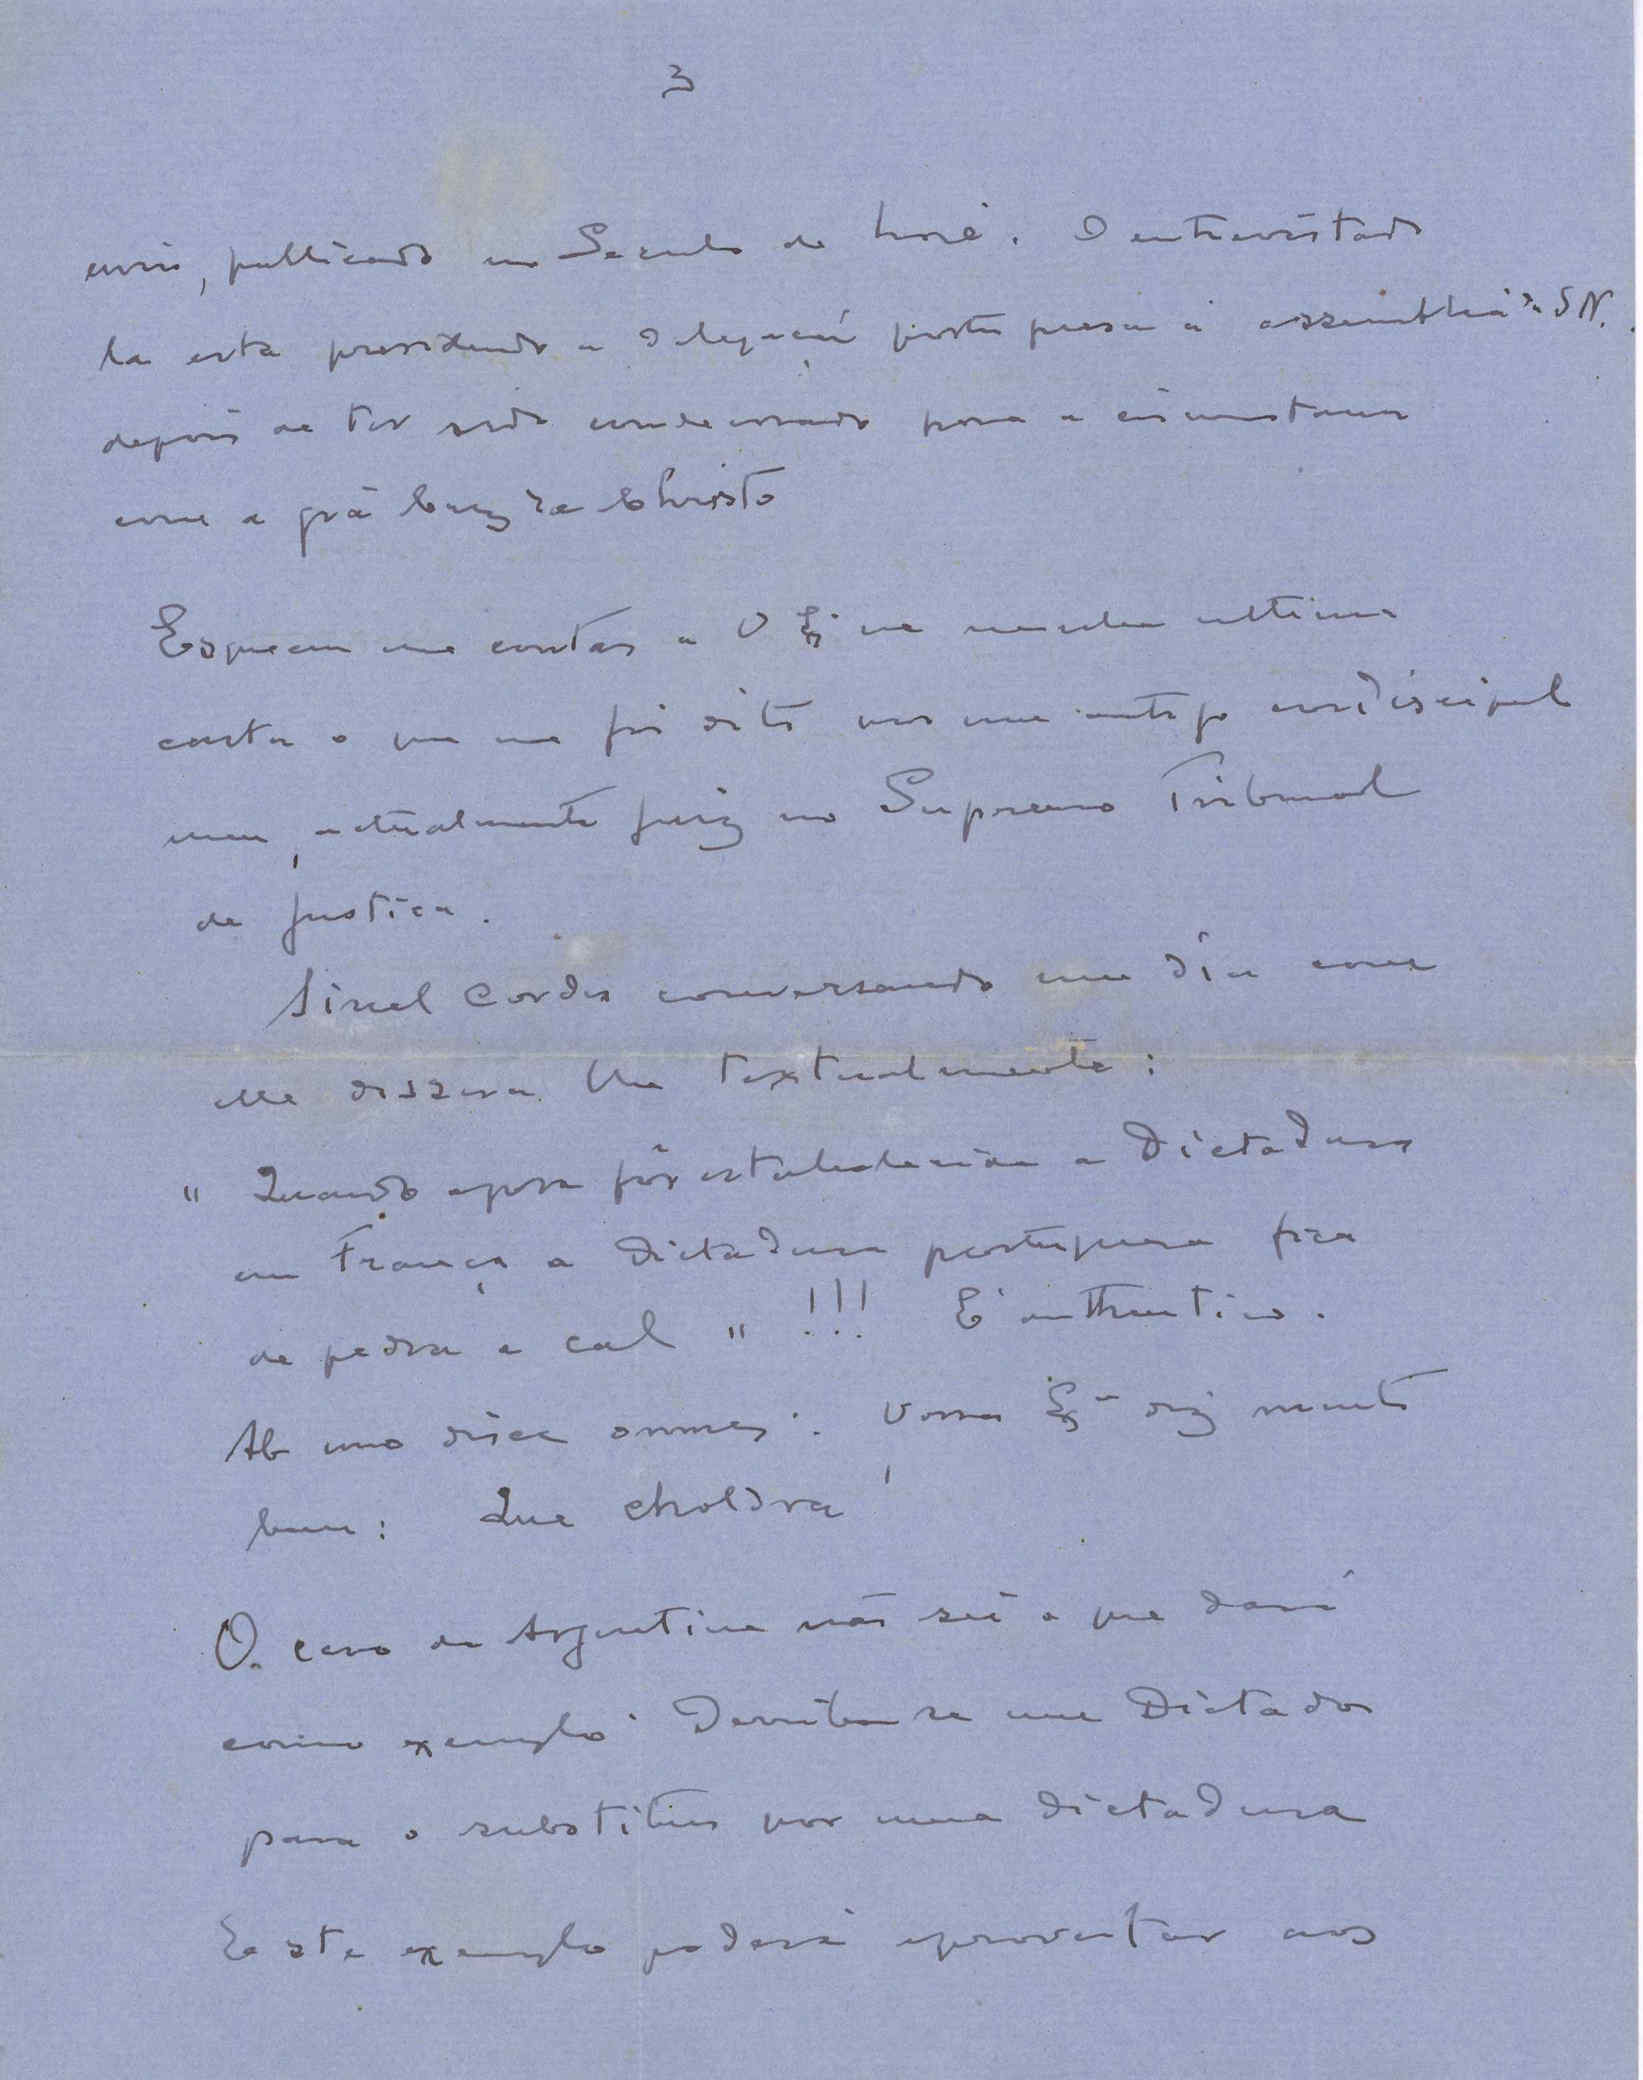 3
envio, publicado no Seculo de hoje. O entrevistado
la está presidindo a delegação portugueza á assembleia da S N.
depois de ter sido condecorado para a circunstancia
com a grã Cruz de Christo
Esqueceu me contar a V Exª na minha ultima
carta o que me foi dito por um antigo condiscipulo
meu, actualmente juiz no Supremo Tribunal
de Justiça.
Sinel Cordes conversando um dia com
elle dissera lhe textualmente:
" Quando agora fôr estabelecida a Dictadura
em França a dictadura portugueza fica
de pedra e cal " !!! E' authentico.
Ab uno disce omnes. Vossa Exª diz muito
bem: Que choldra!
O caso da Argentina não sei o que dará
como exemplo. Derruba se um Dictador
para o substituir por uma dictadura
Este exemplo poderá aproveitar aos